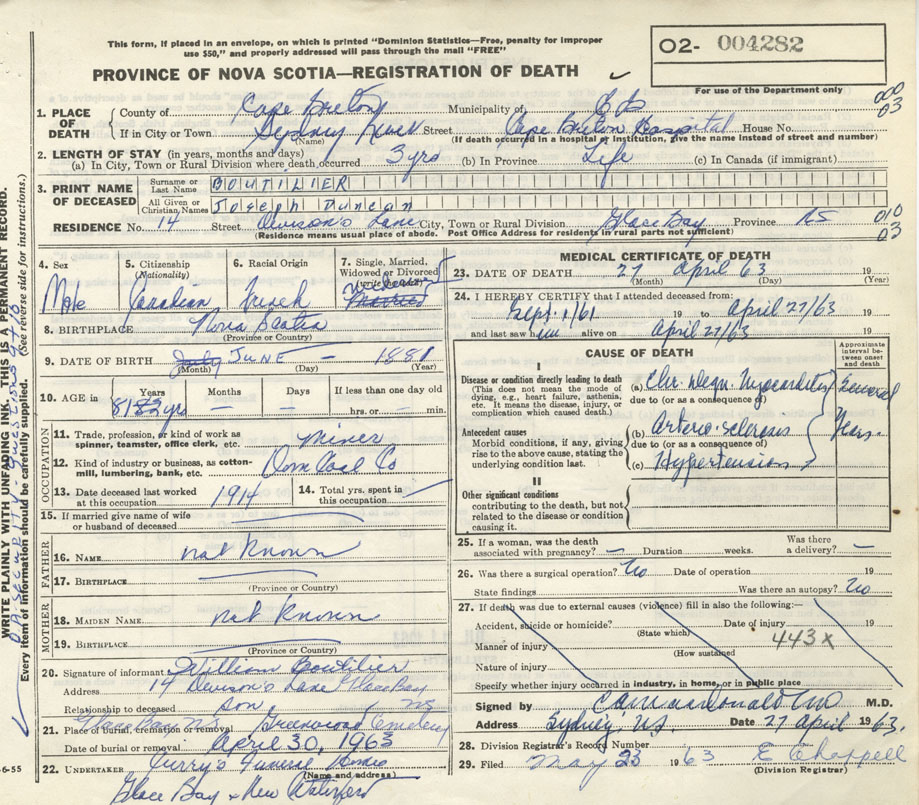 This form, if placed in an envelope, on which is printed "Dominion Statistics—Free, penalty for improper
use $50," and properly addressed will pass through the mail "FREE"
PROVINCE OF NOVA SCOTIA—REGISTRATION OF DEATH
O2- 004282
For use of the Department only
000
03
1. PLACE OF DEATH
County of Cape Breton Municipality of C B
If in City or Town Sydney River Street Cape Breton Hospital House No.
(Name) (If death occurred in a hospital or institution, give the name instead of street and number)
2. LENGTH OF STAY (in years, months and days)
(a) In City, Town or Rural Division where death occurred 3 yrs (b) In Province Life (c) In Canada (if immigrant)
3. PRINT NAME OF DECEASED
Surname or Last Name BOUTILIER
All Given or Christian Names Joseph Duncan
RESIDENCE No. 14 Street Lane City, Town or Rural Division Glace Bay Province NS
(Residence means usual place of abode. Post Office Address for residents in rural parts not sufficient)
010
03
4. Sex
Male
5. Citizenship
(Nationality)
Canadian
6. Racial Origin
French
7. Single, Married, Widowed or Divorced
(write the word)
widowed
Married
8. BIRTHPLACE Nova Scotia
(Province or Country)
9. DATE OF BIRTH July JUNE — 1881
(Month) (Day) (Year)
10. AGE in
Years Months Days If less than one day old
81 82 yrs — — hrs. or — min.
OCCUPATION
11. Trade, profession, or kind of work as spinner, teamster, office clerk, etc. Miner
12. Kind of industry or business, as cotton-mill, lumbering, bank, etc. Dom Coal Co
13. Date deceased last worked at this occupation 1914
14. Total yrs. spent in this occupation
15. If married give name of wife or husband of deceased
FATHER
16. NAME not Known
17. BIRTHPLACE
(Province or Country)
MOTHER
18. MAIDEN NAME not Known
19. BIRTHPLACE
(Province or Country)
20. Signature of informant William Boutilier
Address 14 Lane Glace Bay
Relationship to deceased son NS
21. Place of burial, cremation or removal Glace Bay N.S. Greenwood Cemetery
Date of burial or removal April 30, 1963
22. UNDERTAKER Curry's Funeral Homes
(Name and address)
Glace Bay & New Waterford
6-55
WRITE PLAINLY WITH UNFADING INK. THIS IS A PERMANENT RECORD.
Every item of information should be carefully supplied. (See reverse side for instructions.)
MEDICAL CERTIFICATE OF DEATH
23. DATE OF DEATH 27 April 63 19
(Month) (Day) (Year)
24. I HEREBY CERTIFY that I attended deceased from:
Sept. 1/61 19 to April 27/63 19
and last saw him alive on April 27/63 19
CAUSE OF DEATH
Approximate interval between onset and death
I
Disease or condition directly leading to death
(This does not mean the mode of dying, e.g., heart failure, asthenia, etc. It means the disease, injury, or complication which caused death.)
(a) Chr. Degn. Myocarditis
due to (or as a consequence of)
Several
Years.
Antecedent causes
Morbid conditions, if any, giving rise to the above cause, stating the underlying condition last.
(b) Arterio-sclerosis
due to (or as a consequence of)
(c) Hypertension
II
Other significant conditions
contributing to the death, but not related to the disease or condition causing it.
25. If a woman, was the death associated with pregnancy? — Duration weeks. Was there a delivery? —
26. Was there a surgical operation? No Date of operation 19
State findings Was there an autopsy? No
27. If death was due to external causes (violence) fill in also the following:—
Accident, suicide or homicide? Date of injury 19
(State which)
443x
Manner of injury
(How sustained)
Nature of injury
Specify whether injury occurred in industry, in home, or in public place
Signed by MacDonald MD M.D.
Address Sydney, N.S. Date 27 April 1963.
28. Division Registrar's Record Number
29. Filed May 23 1963 E Chappell
(Division Registrar)